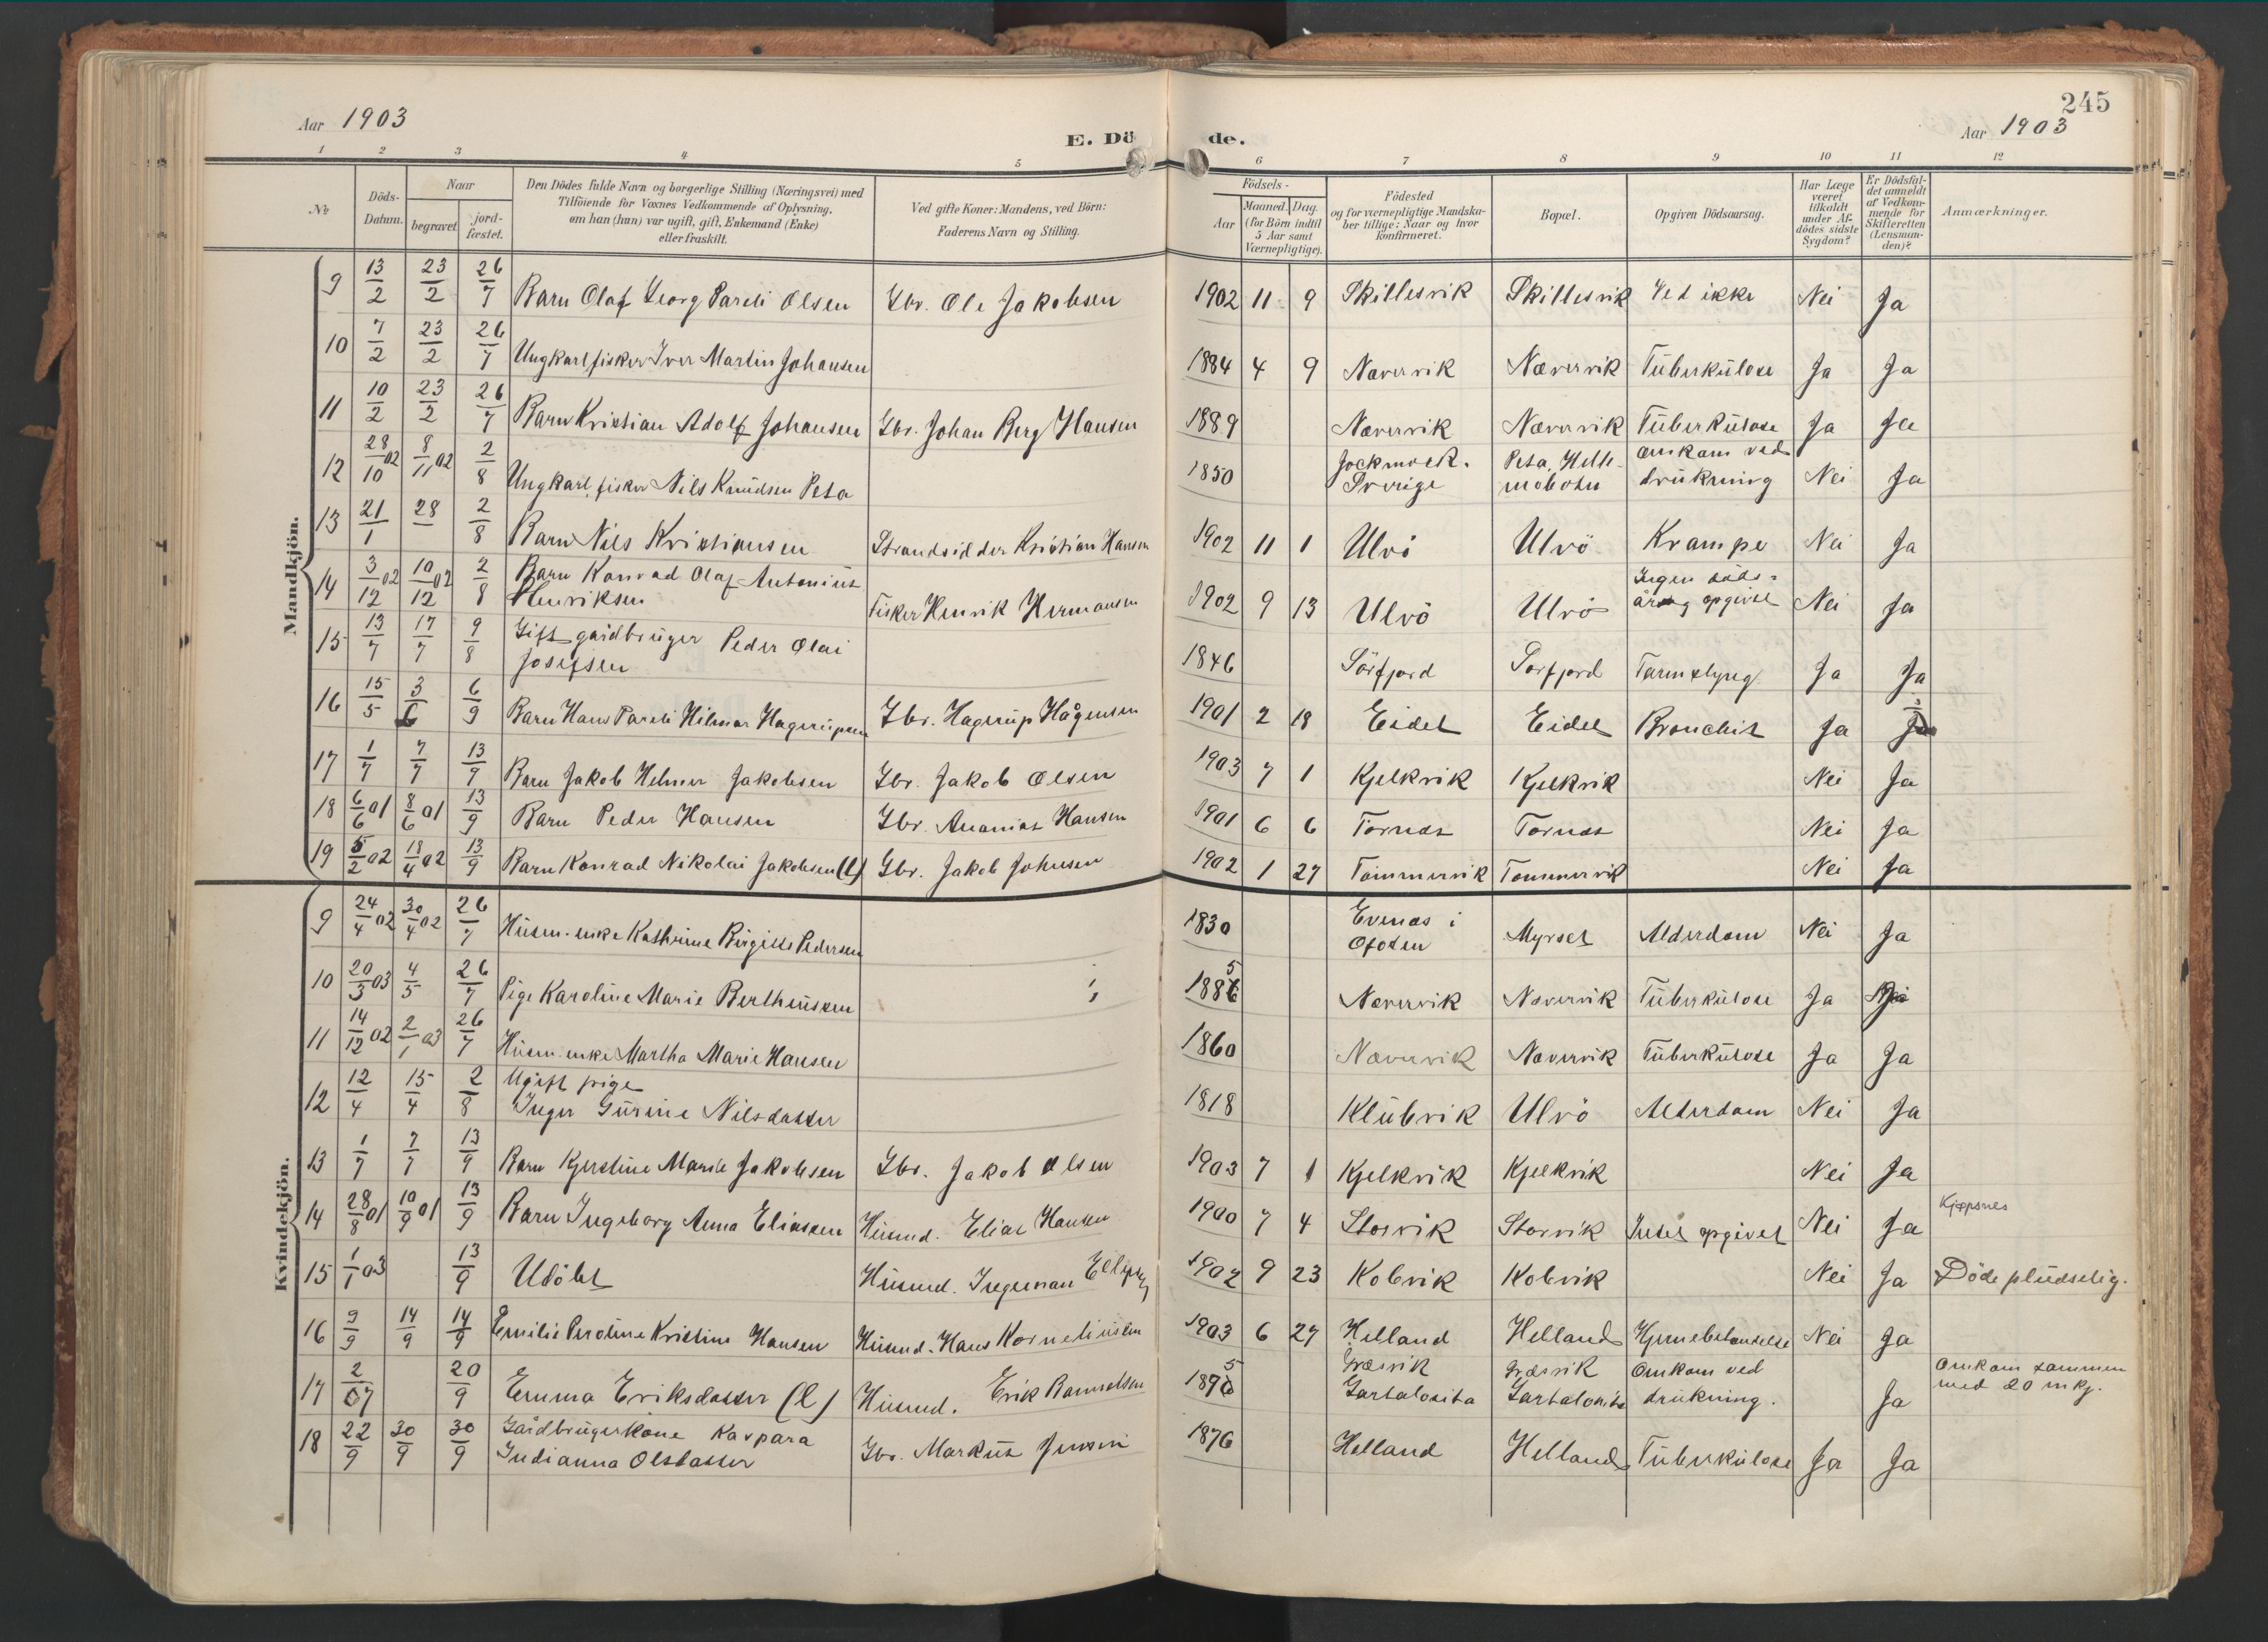 245
Aar 1903
E. Dö
de.
Aar 1903
1 2 3 4 5 6 7 8 9 10 11 12
Nr
Döds-Datum.
Naar
begravet
jord-fæstet.
Den Dödes fulde Navn og borgerlige Stilling (Næringsvei) med
Tilföiende for Voxnes Vedkommende af Oplysning,
om han (hun) var ugift, gift, Enkemand (Enke)
eller fraskilt.
Ved gifte Koner: Mandens, ved Börn:
Faderens Navn og Stilling.
Födsels-
Aar
Maaned. Dag.
(for Börn indtil
5 Aar samt
Værnepligtige).
Födested
og for værnepligtige Mandska-
ber tillige: Naar og hvor
konfirmeret.
Bopæl.
Opgiven Dödsaarsag.
Har Læge
været
tilkaldt
under Af-
dödes sidste
Sygdom?
Er Dödsfal-
det anmeldt
af Vedkom-
mende for
Skifteretten
(Lensman-
den)?
Anmærkninger.
Mandkjön.
9 13/2 23/2 26/7 Barn Olaf Georg Pareli Olsen Gbr. Ole Jakobsen 1902 11 9 Skillesvik Skillesvik Ved ikke Nei Ja
10 7/2 23/2 26/7 Ungkarl fisker Iver Martin Johansen 1884 4 9 Nævervik Nævervik Tüberkülose Ja Ja
11 10/2 23/2 26/7 Barn Kristian Adolf Johansen Gbr. Johan Berg Hansen 1889 Nævervik Nævervik Tüberkülose Ja Ja
12 28/10 02 8/11 02 2/8 Ungkarl fisker Nils Knüdsen Peta 1850 Jockmock. Sverige Peta, Helle-mobotn omkom ved drükning Nei Ja
13 21/1 28 2/8 Barn Nils Kristiansen Strandsidder Kristian Hansen 1902 11 1 Ulvö Ulvö Krampe Nei Ja
14 3/12 02 10/12 02 2/8 Barn Konrad Olaf Antonius Henriksen Fisker Henrik Hermansen 1902 9 13 Ulvö Ulvö Ingen döds- opgivet Nei Ja
15 13/7 17/7 9/8 Gift gaardbrüger Peder Olai Josefsen 1846 Sörfjord Sörfjord Tarmslyng Ja Ja
16 15/5 3/6 6/9 Barn Hans Pareli Hilmar Hagerüpsen Gbr. Hagerüp Hågensen 1901 2 18 Eidet Eidet Bronchit Ja Ja
17 1/7 7/7 13/9 Barn Jakob Helmer Jakobsen Gbr. Jakob Olsen 1903 7 1 Kjelkvik Kjelkvik Nei Ja
18 6/6 01 8/6 01 13/9 Barn Peder Hansen Gbr. Ananias Hansen 1901 6 6 Tornæs Tornæs Nei Ja
19 5/2 02 18/4 02 13/9 Barn Konrad Nikolai Jakobsen (l) Gbr. Jakob Johnsen 1902 1 27 Tømmervik Tømmervik Nei Ja
Kvindekjön.
9 24/4 02 30/4 02 26/7 Hüsm. enke Kathrine Birgitte Pedersen 1830 Evenæs i Ofoten Myrset Alderdom Nei Ja
10 20/3 03 4/5 26/7 Pige Karoline Marie Bertheüssen 1885 Nævervik Nævervik Tüberkülose Ja
11 14/12 02 2/1 03 26/7 Hüsm. enke Martha Marie Hansen 1860 Nævervik Nævervik Tüberkülose Ja Ja
12 12/4 15/4 2/8 Ugift pige Inger Gürine Nilsdatter 1818 Klübvik Ulvö Alderdom Nei Ja
13 1/7 7/7 13/9 Barn Kjerstine Marie Jakobsen Gbr. Jakob Olsen 1903 7 1 Kjelkvik Kjelkvik Nei Ja
14 28/8 01 10/9 01 13/9 Barn Ingeborg Anna Eliassen Hüsmd. Elias Hansen 1900 7 4 Storvik Storvik Intet opgivet Nei Ja Kjøpsnes
15 1/1 03 13/9 Udöbt Hüsmd. Ingeman 1902 9 23 Kobvik Kobvik Nei Ja Döde plüdselig.
16 9/9 14/9 14/9 Emilie Peroline Kristine Hansen Hüsmd. Hans Korneliüsen 1903 6 27 Helland Helland Hjernebetændelse Nei Ja
17 2/07 20/9 Emma Eriksdatter (l) Hüsmd. Erik 1895 Græsvik Gartalosita Græsvik Gartalosita Omkom ved drükning. Ja Omkom sammen med 20 mkj.
18 22/9 30/9 30/9 Gårdbrügerkone Kaspara Indianna Olsdatter Gbr. Markus Jensen 1876 Helland Helland Tüberkülose Ja Ja